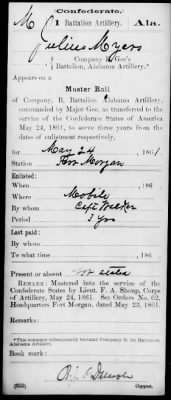 (Confederate.)
M 1 Battalion Artillery. Ala.
Julius Myers
Company B, Gee's
Battalion, Alabama Artillery.*
Appears on a
Muster Roll
of Company, B. Battalion Alabama Artillery,
commanded by Major Gee, as transferred to the
service of the Confederate States of America
May 24, 1861, to serve three years from the
dates of enlistment respectively.
for May 24, 1861
Station Fort Morgan
Enlisted:
When , 186
Where Mobile
By whom Capt
Period 3 yrs
Last paid:
By whom
To what time , 186
Present or absent not stated
REMARK: Mustered into the service of the
Confederate States by Lieut. F. A. Shoup, Corps
of Artillery, May 24, 1861. See Orders No. 62,
Headquarters Fort Morgan, dated May 23, 1861.
Remarks:
*This company subsequently became Company B, 1st Battalion
Alabama Artillery.
Book mark:
Copyist.